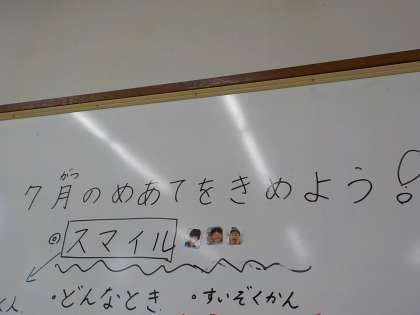 がつ
7月のめあてをきめよう!
◎スマイル
・どんなとき ・すいぞくかん